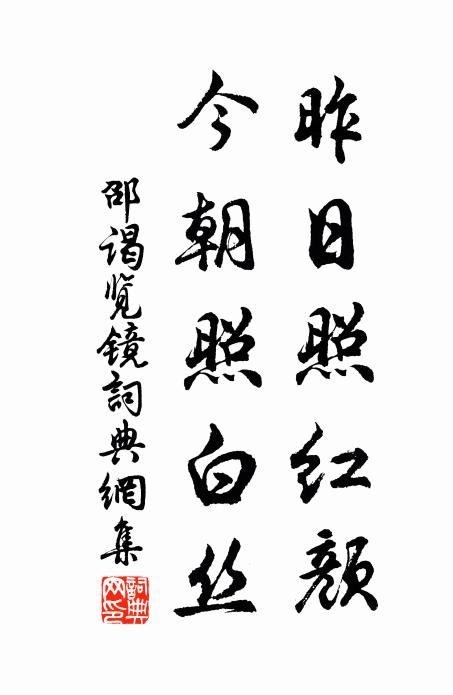 昨日照红颜
今朝照白丝
邵谒览镜詞典網集
詞典網印